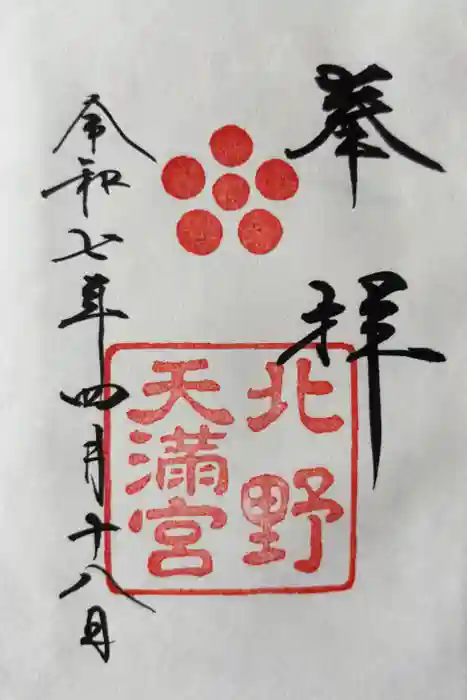 奉拝
北野
天満宮
令和七年四月十八日